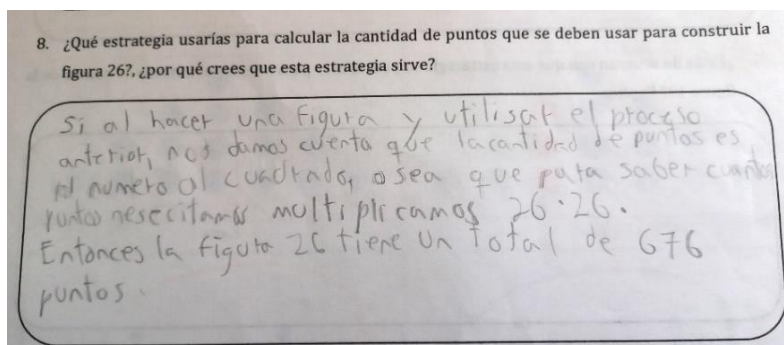 8. ¿Qué estrategia usarías para calcular la cantidad de puntos que se deben usar para construir la
figura 26?, ¿por qué crees que esta estrategia sirve?
Si al hacer una figura y utilisar el proceso
anterior, nos damos cuenta que la cantidad de puntos es
el numero al cuadrado, o sea que para saber cuantos
puntos nesecitamos multiplicamos 26·26.
Entonces la figura 26 tiene un total de 676
puntos.